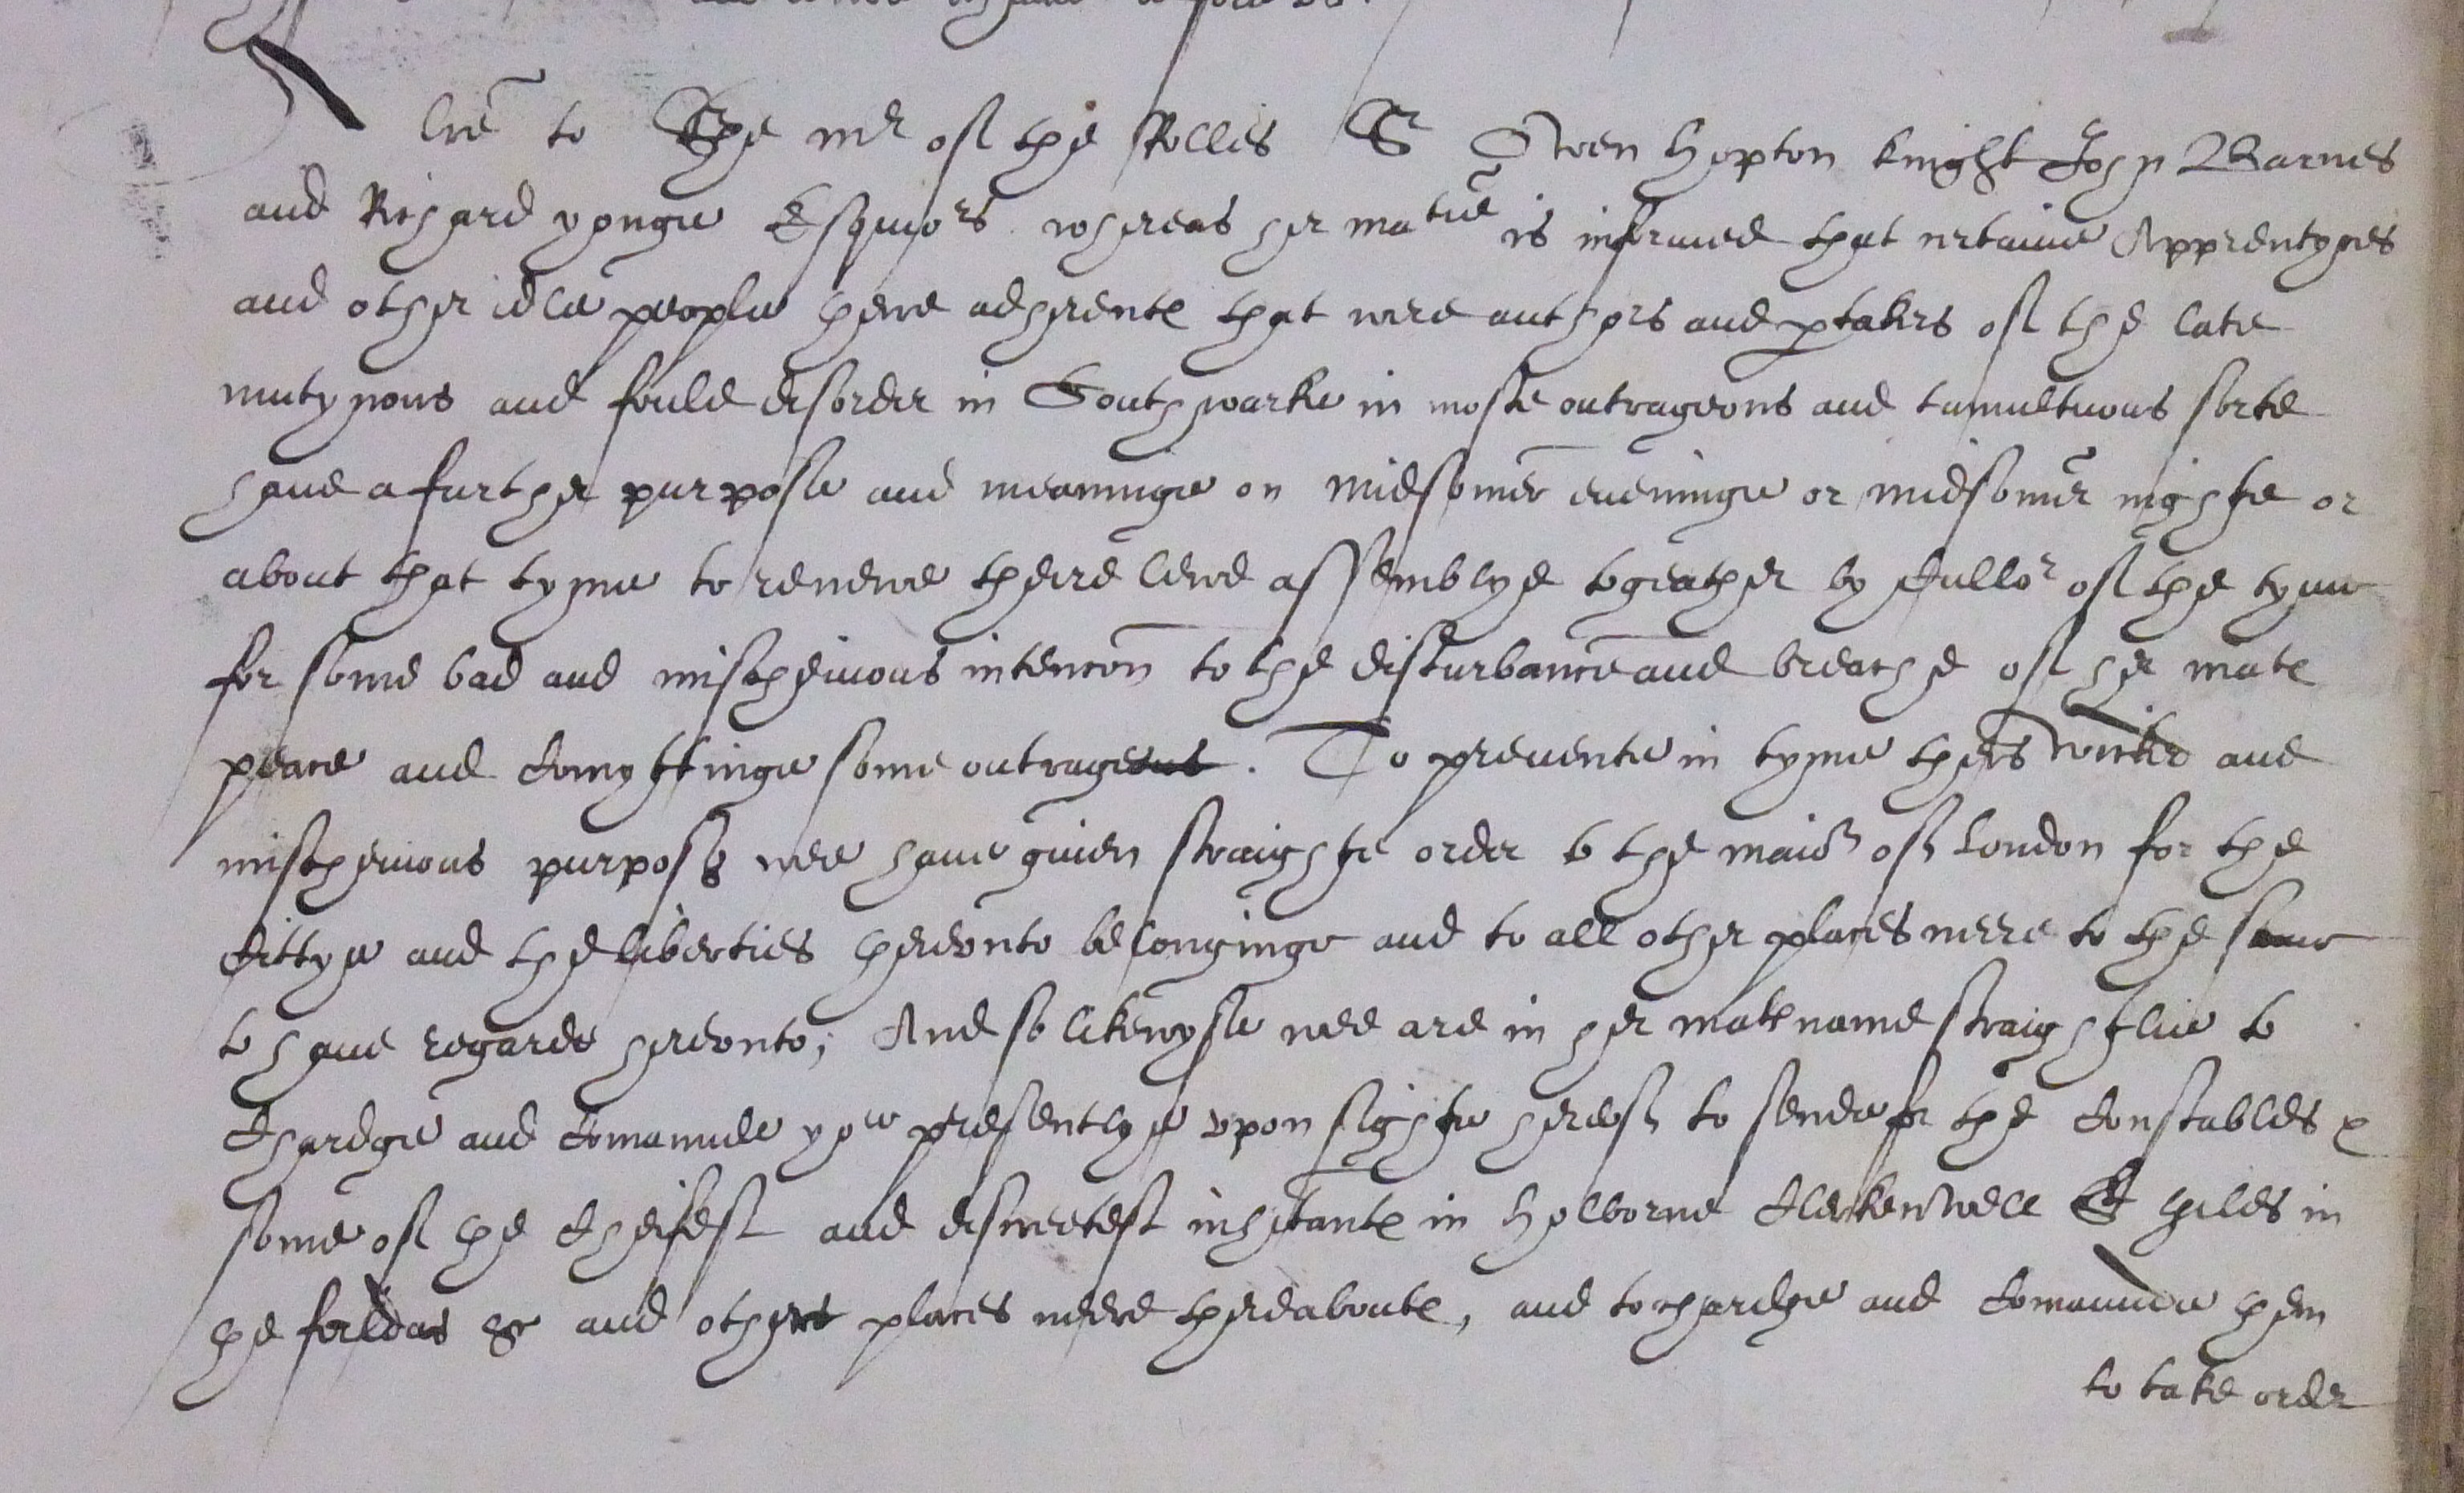 A lre to The mr of the Rolles Sr Owen Hopton knight John Barnes
and Richard yonge Esquiors whereas her matie is informed that certaine Apprentyces
and other idle people theire adherentes that were authors and ptakers of the late
mutynous and foule disorder in Southwarke in moste outrageous and tumultuous sorte
have a further purpose and meaninge on midsomer eveninge or midsomer nighte or
about that tyme to renewe theire lewd assemblye togeather by cullor of the tyme
for some bad and mischeivous intencon to the disturbance and breache of her mates
peace and comyttinge some outrage. To prevente in tyme theis wicked and
mischeivous purposes wee have given straighte order to the maior of London for the
Cittye and the liberties thereunto belonginge and to all other places nere to the same
to have regarde hereunto, And so likewyse wee are in her mates name straightlie to
Chardge and comaunde yow presentlye upon sighte hereof to sende for the Constables &
some of the Cheifest and discreetest inhitantes in Holborne Clerkenwell St Giles in
the feildes &c and other places neere thereaboutes, and to chardge and comaunde them
to take order